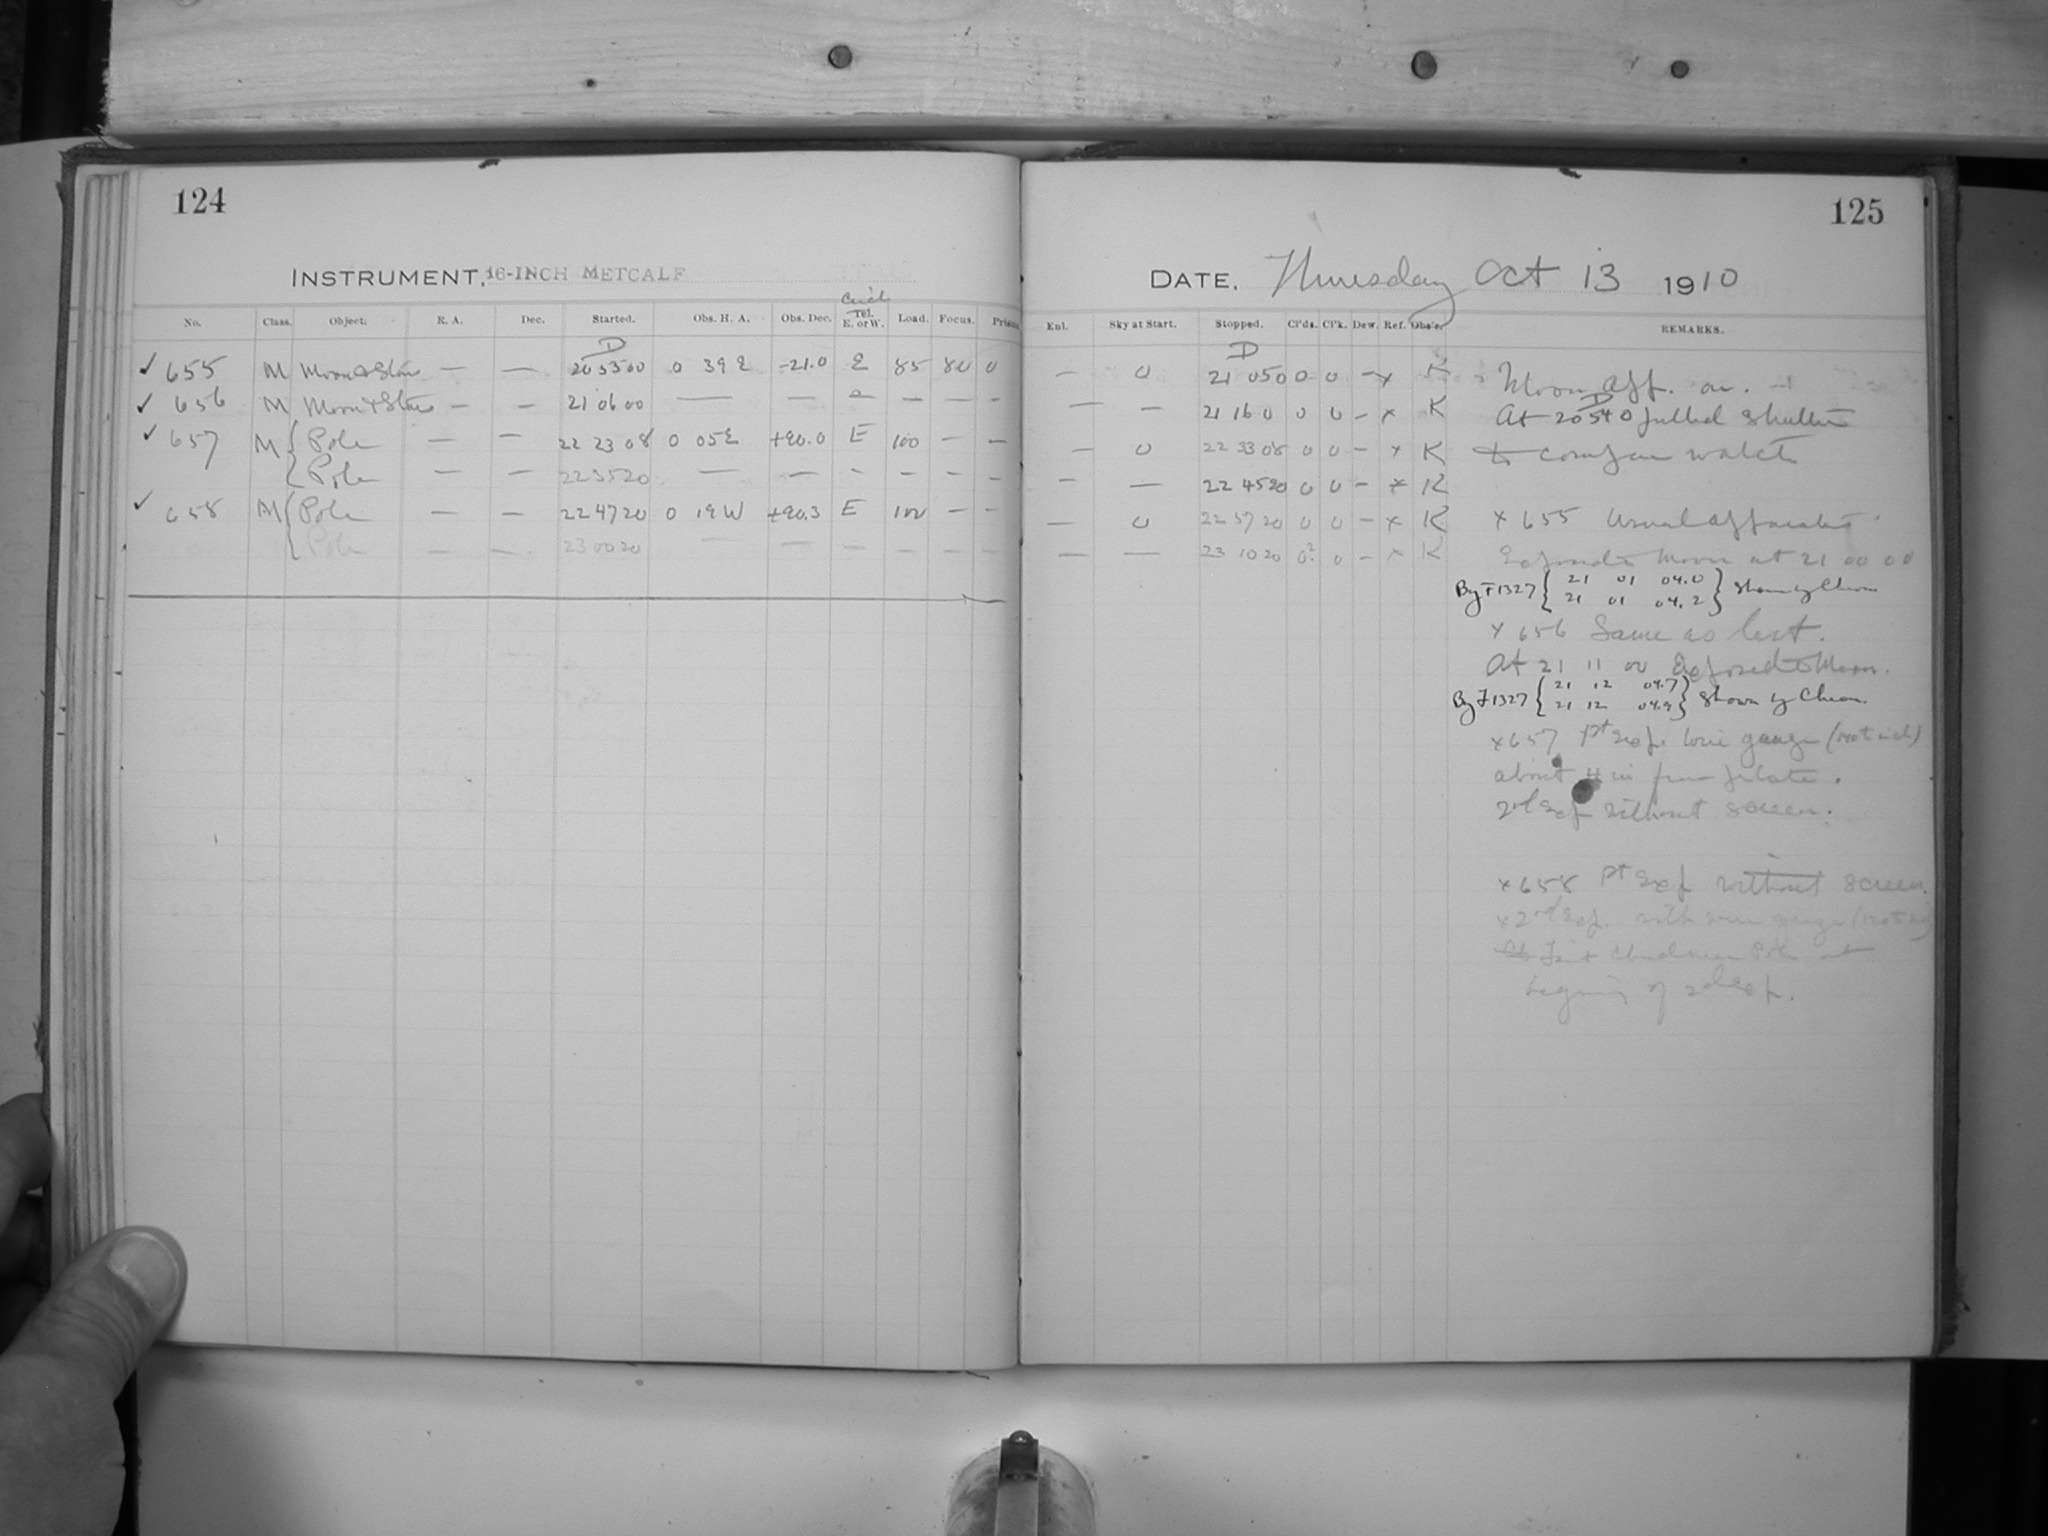 124
INSTRUMENT, 16-INCH METCALF
Circle
No. Class. Object. R. A. Dec. Started. Obs. H. A. Obs. Dec. Tel. E. or W. Load. Focus. Prism
D
✓ 655 M Moon & Stars — — 20 55 00 0 39 E -21.0 E 85 80 0
✓ 656 M Moon & Stars — — 21 06 00 — — — — —
✓ 657 M { Pole — — 22 23 08 0 05 E +90.0 E 100 — —
{ Pole — — 22 35 20 — — — — — —
✓ 658 M { Pole — — 22 47 20 0 19 W +90.3 E 100 — —
{ Pole — — 23 00 20 — — — — — —
125
DATE. Thursday Oct 13 1910
Enl. Sky at Start. Stopped. Cl'ds. Cl'k. Dew. Ref. Obs'r. REMARKS.
D
— 0 21 05 0 0 0 — x K Moon app. on.
— — 21 16 0 0 0 — x K At 20 54 0 pulled shutter
— 0 22 33 08 0 0 — x K to compare watch
— — 22 45 20 0 0 — x K
— 0 22 57 20 0 0 — x K x 655 Usual apparatus
— — 23 10 20 0? 0 — x K Exposed to Moon at 21 00 00
By F1327 { 21 01 04.0 } Shown by Chron
{ 21 01 04.2 }
x 656 Same as last.
At 21 11 00 Exposed to Moon.
By F1327 { 21 12 04.7 } Shown by Chron.
{ 21 12 04.9 }
x 657 1st Exp. wire gauze
about 4 in from plate.
2nd Exp without screen.
x 658 1st Exp without screen.
x 2nd Exp. with wire gauze
Faint Clouds near Pole at
beginning of 2d exp.